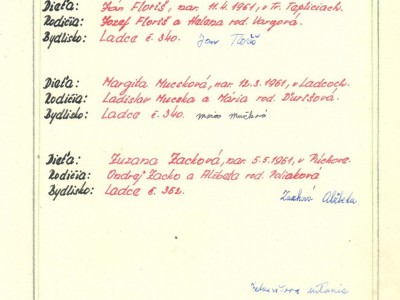 Dieťa: Ján Floriš, nar. 11.4.1961, v Tr. Tepliciach.
Rodičia: Jozef Floriš a Helena rod. Vargová.
Bydlisko: Ladce č. 340.
Dieťa: Margita Mucsková, nar. 12.3.1961, v Ladcoch.
Rodičia: Ladislav Mucska a Mária rod. Ďurišová.
Bydlisko: Ladce č. 340.
Dieťa: Zuzana Zacková, nar. 5.5.1961, v Púchove.
Rodičia: Ondrej Zacko a Alžbeta rod. Poliaková
Bydlisko: Ladce č. 362.
Zacková Alžbeta